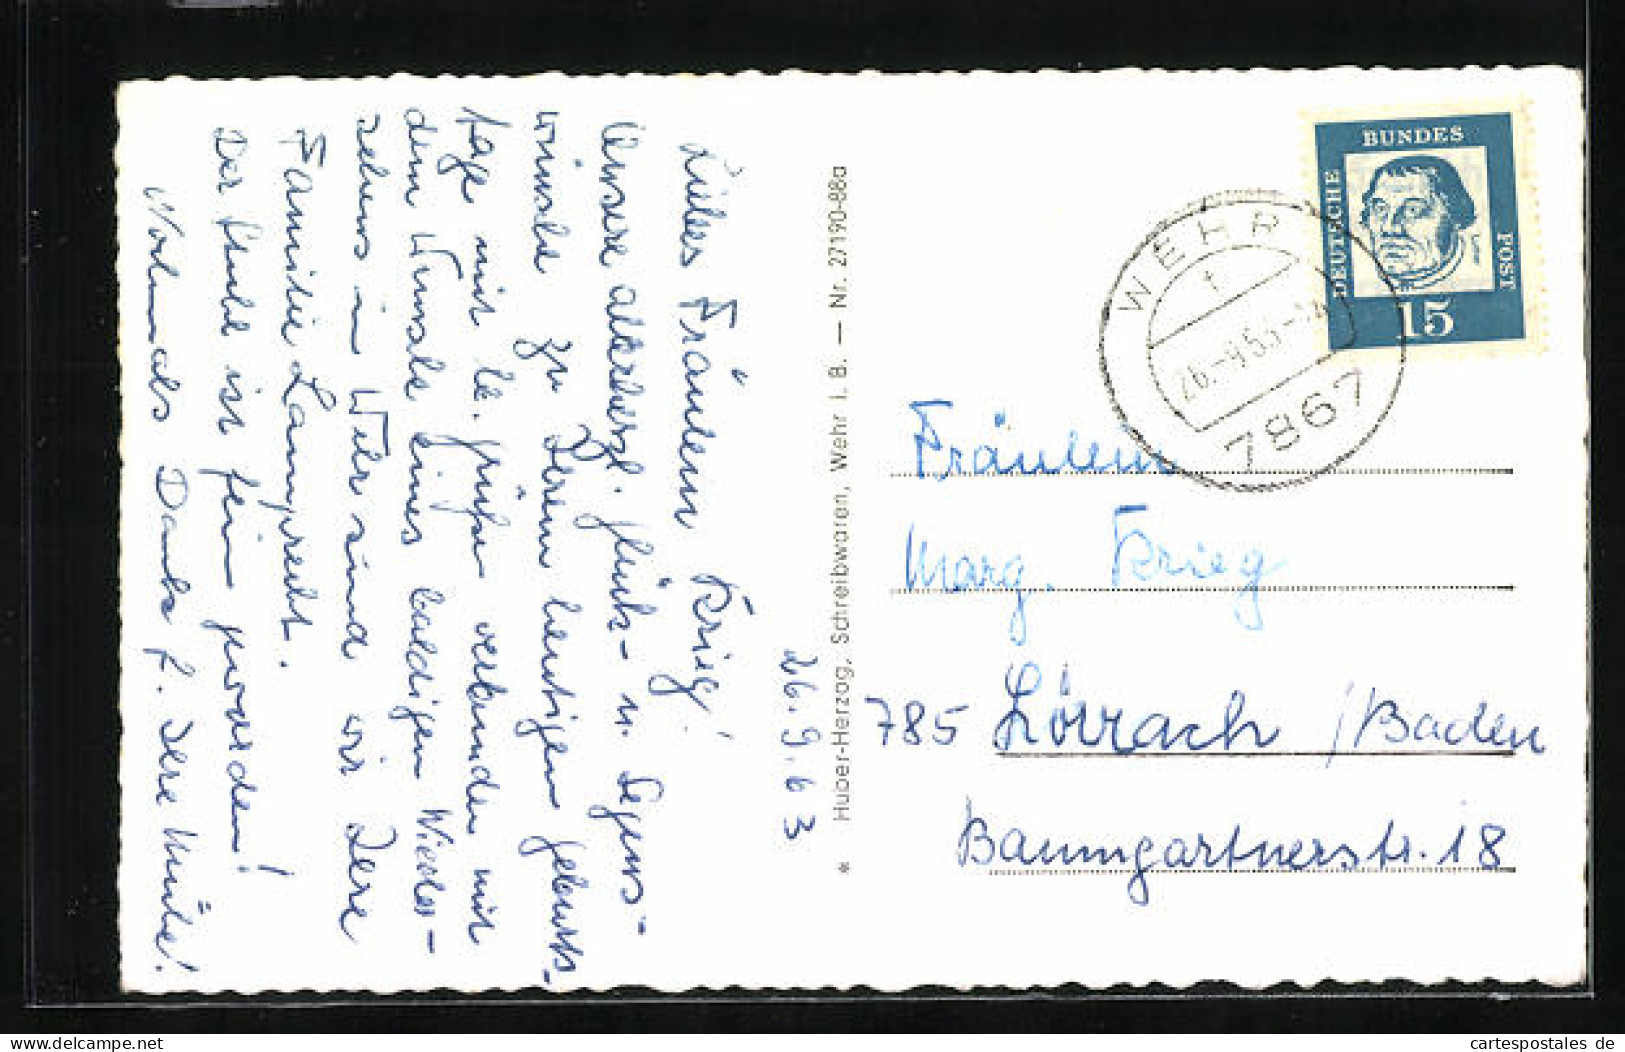 26. 9. 63
Liebes Fräulein Krieg!
Unsere allerherzl. Glück- u. Segens-
wünsche zu Ihrem heutigen Geburts-
tage mit lb. Grüßen verbunden mit
dem Wunsche eines baldigen Wieder-
sehens in Wehr sind wir Ihre
Familie Lamprecht.
Der Stuhl ist fein geworden!
Nochmals Dank f. Ihre Mühe!
* Huber-Herzog, Schreibwaren, Wehr i. B. — Nr. 27190-88a
DEUTSCHE BUNDES POST
15
WEHR
f
26.-9.63-
7867
Fräulein
Marg. Krieg
785 Lörrach / Baden
Baumgartnerstr. 18
www.cartespostales.de
cartespostales de